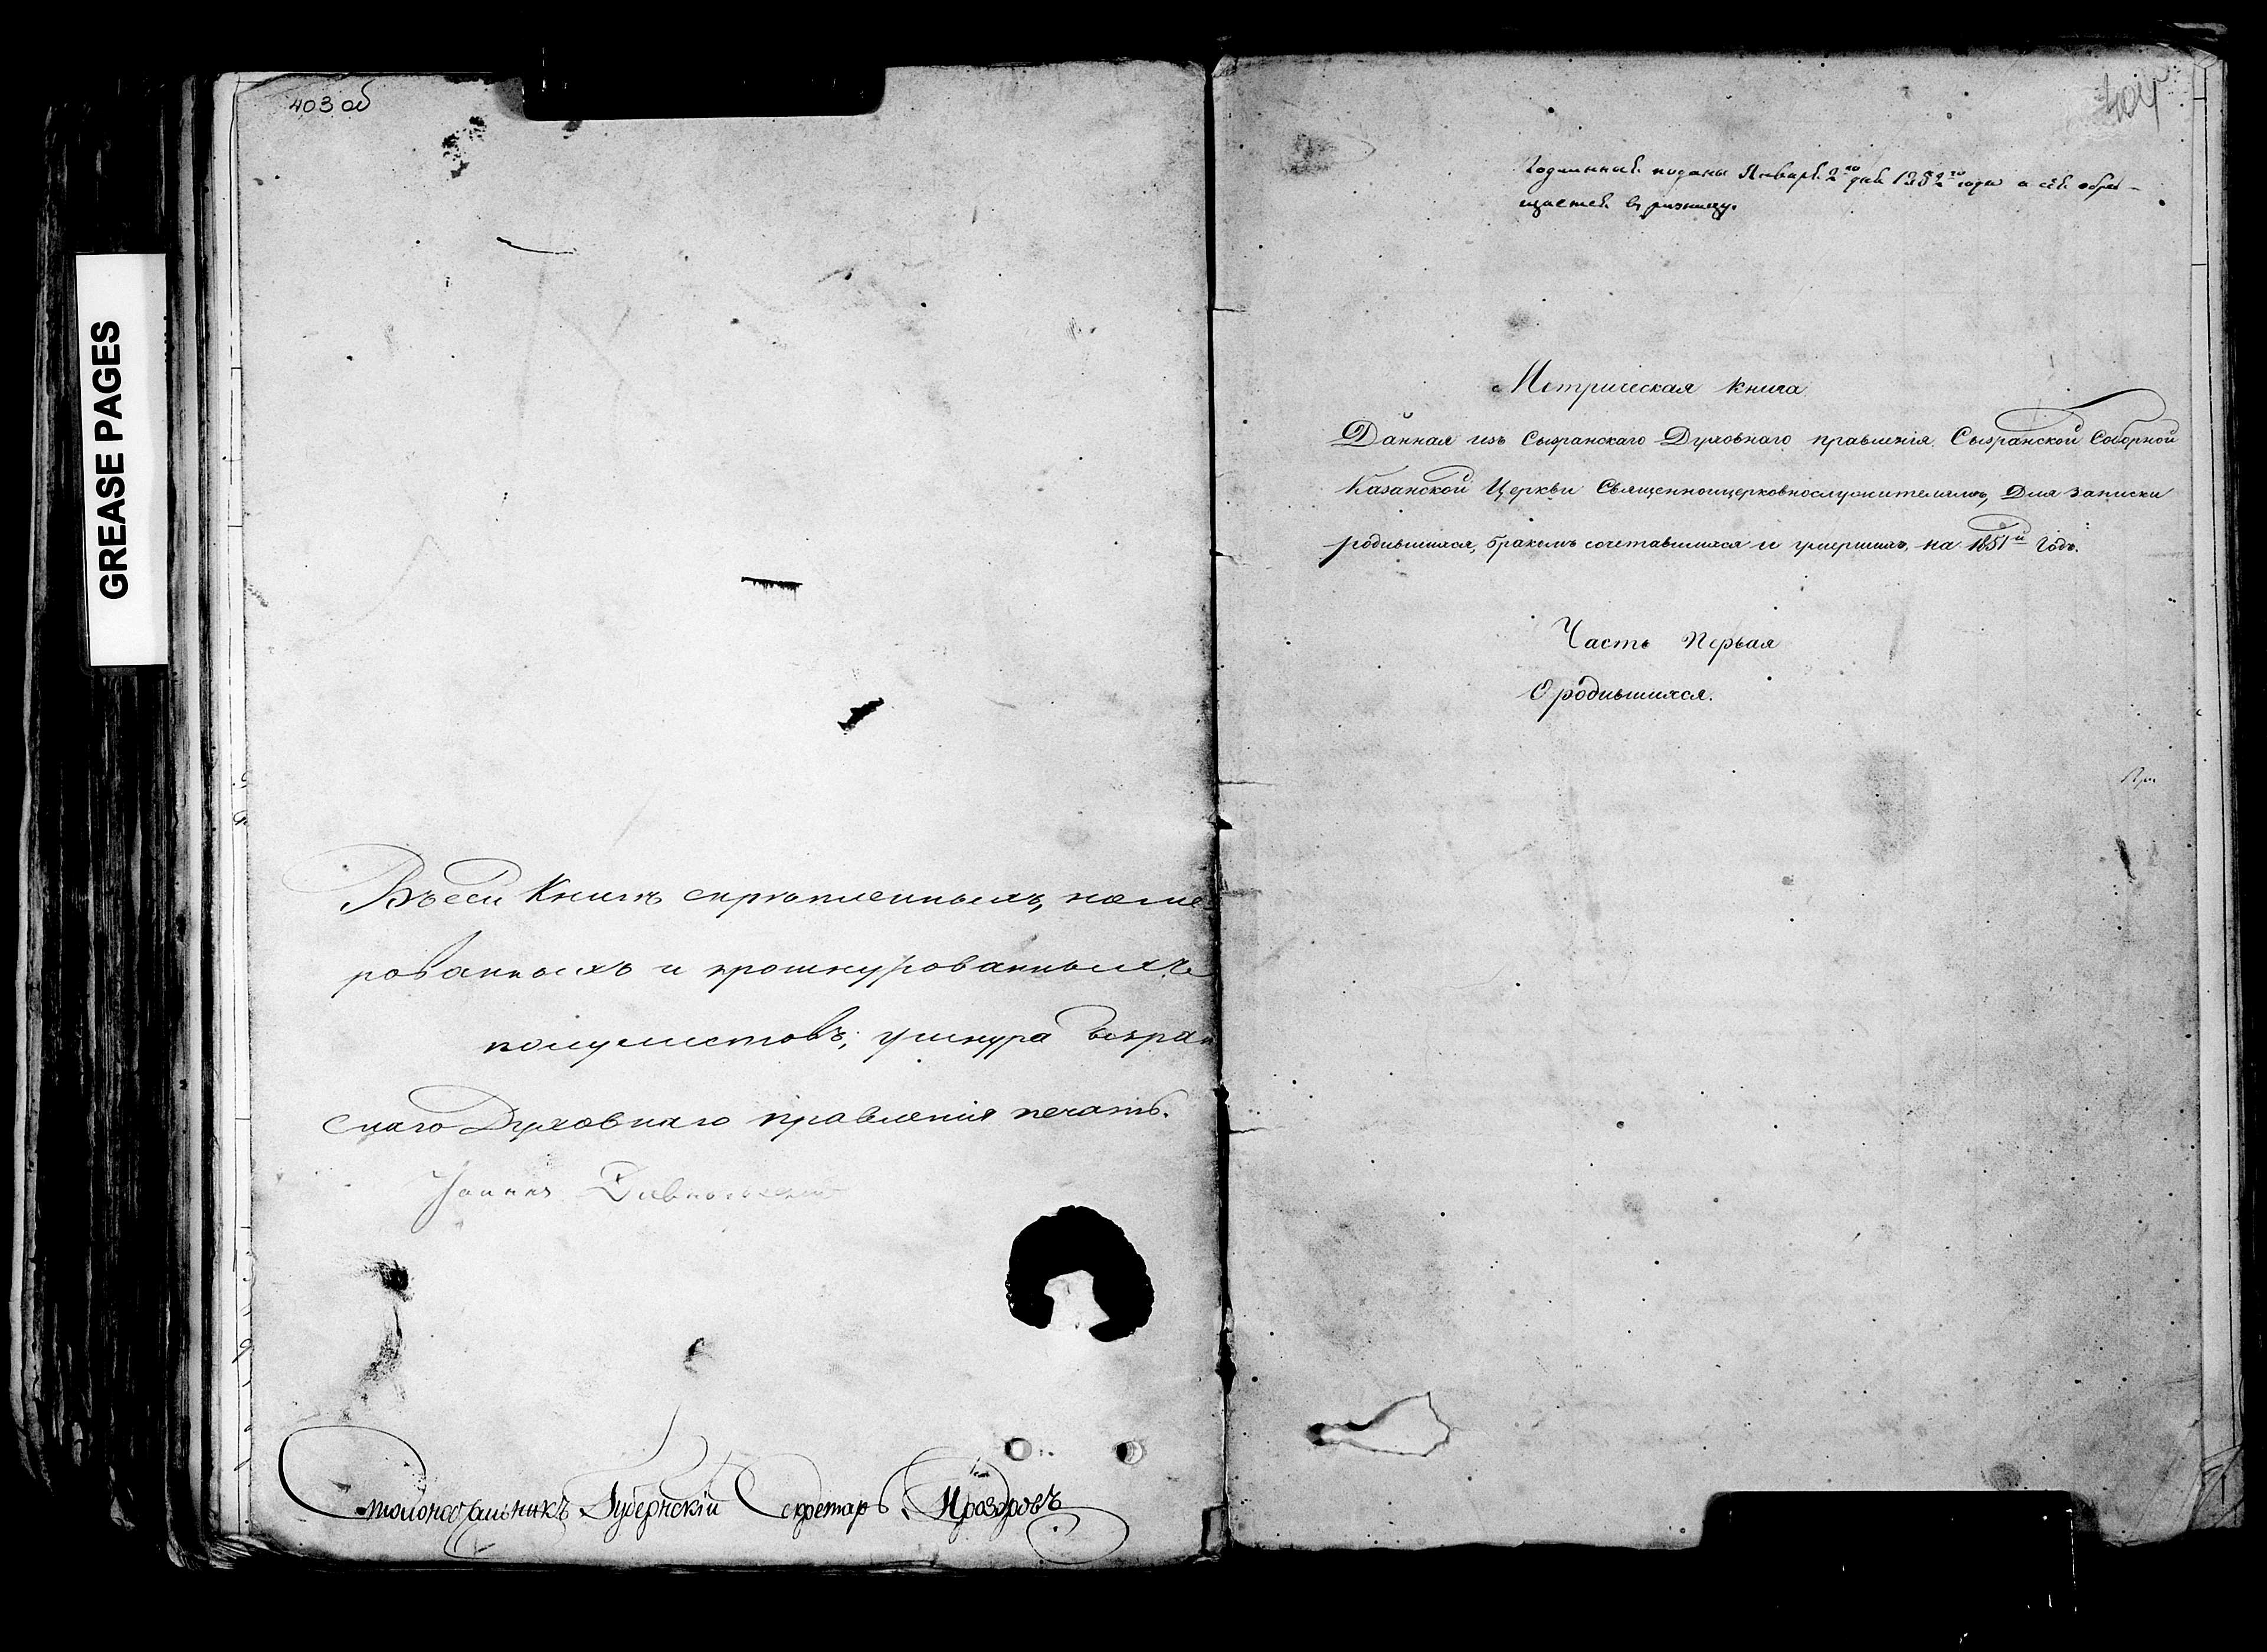 GREASE PAGES
403 об
Въ сей Книгѣ скрѣпленныхъ, номе
рованныхъ и прошнурованныхъ
полулистовъ; у шнура Сызран
скаго Духовнаго правленія печать.
Іоаннъ
Столоначальникъ Губернскій Секретарь
404
поданы Января 2го дня 1852го года а сія обра-
щается в ризницу.
Метрическая книга
Данная изъ Сызранскаго Духовнаго правленія Сызранской Соборной
Казанской Церкви Священноицерковнослужителямъ, Для записки
родившихся, бракомъ сочетавшихся и умершихъ, на 1851й Годъ.
Часть Первая
О родившихся.